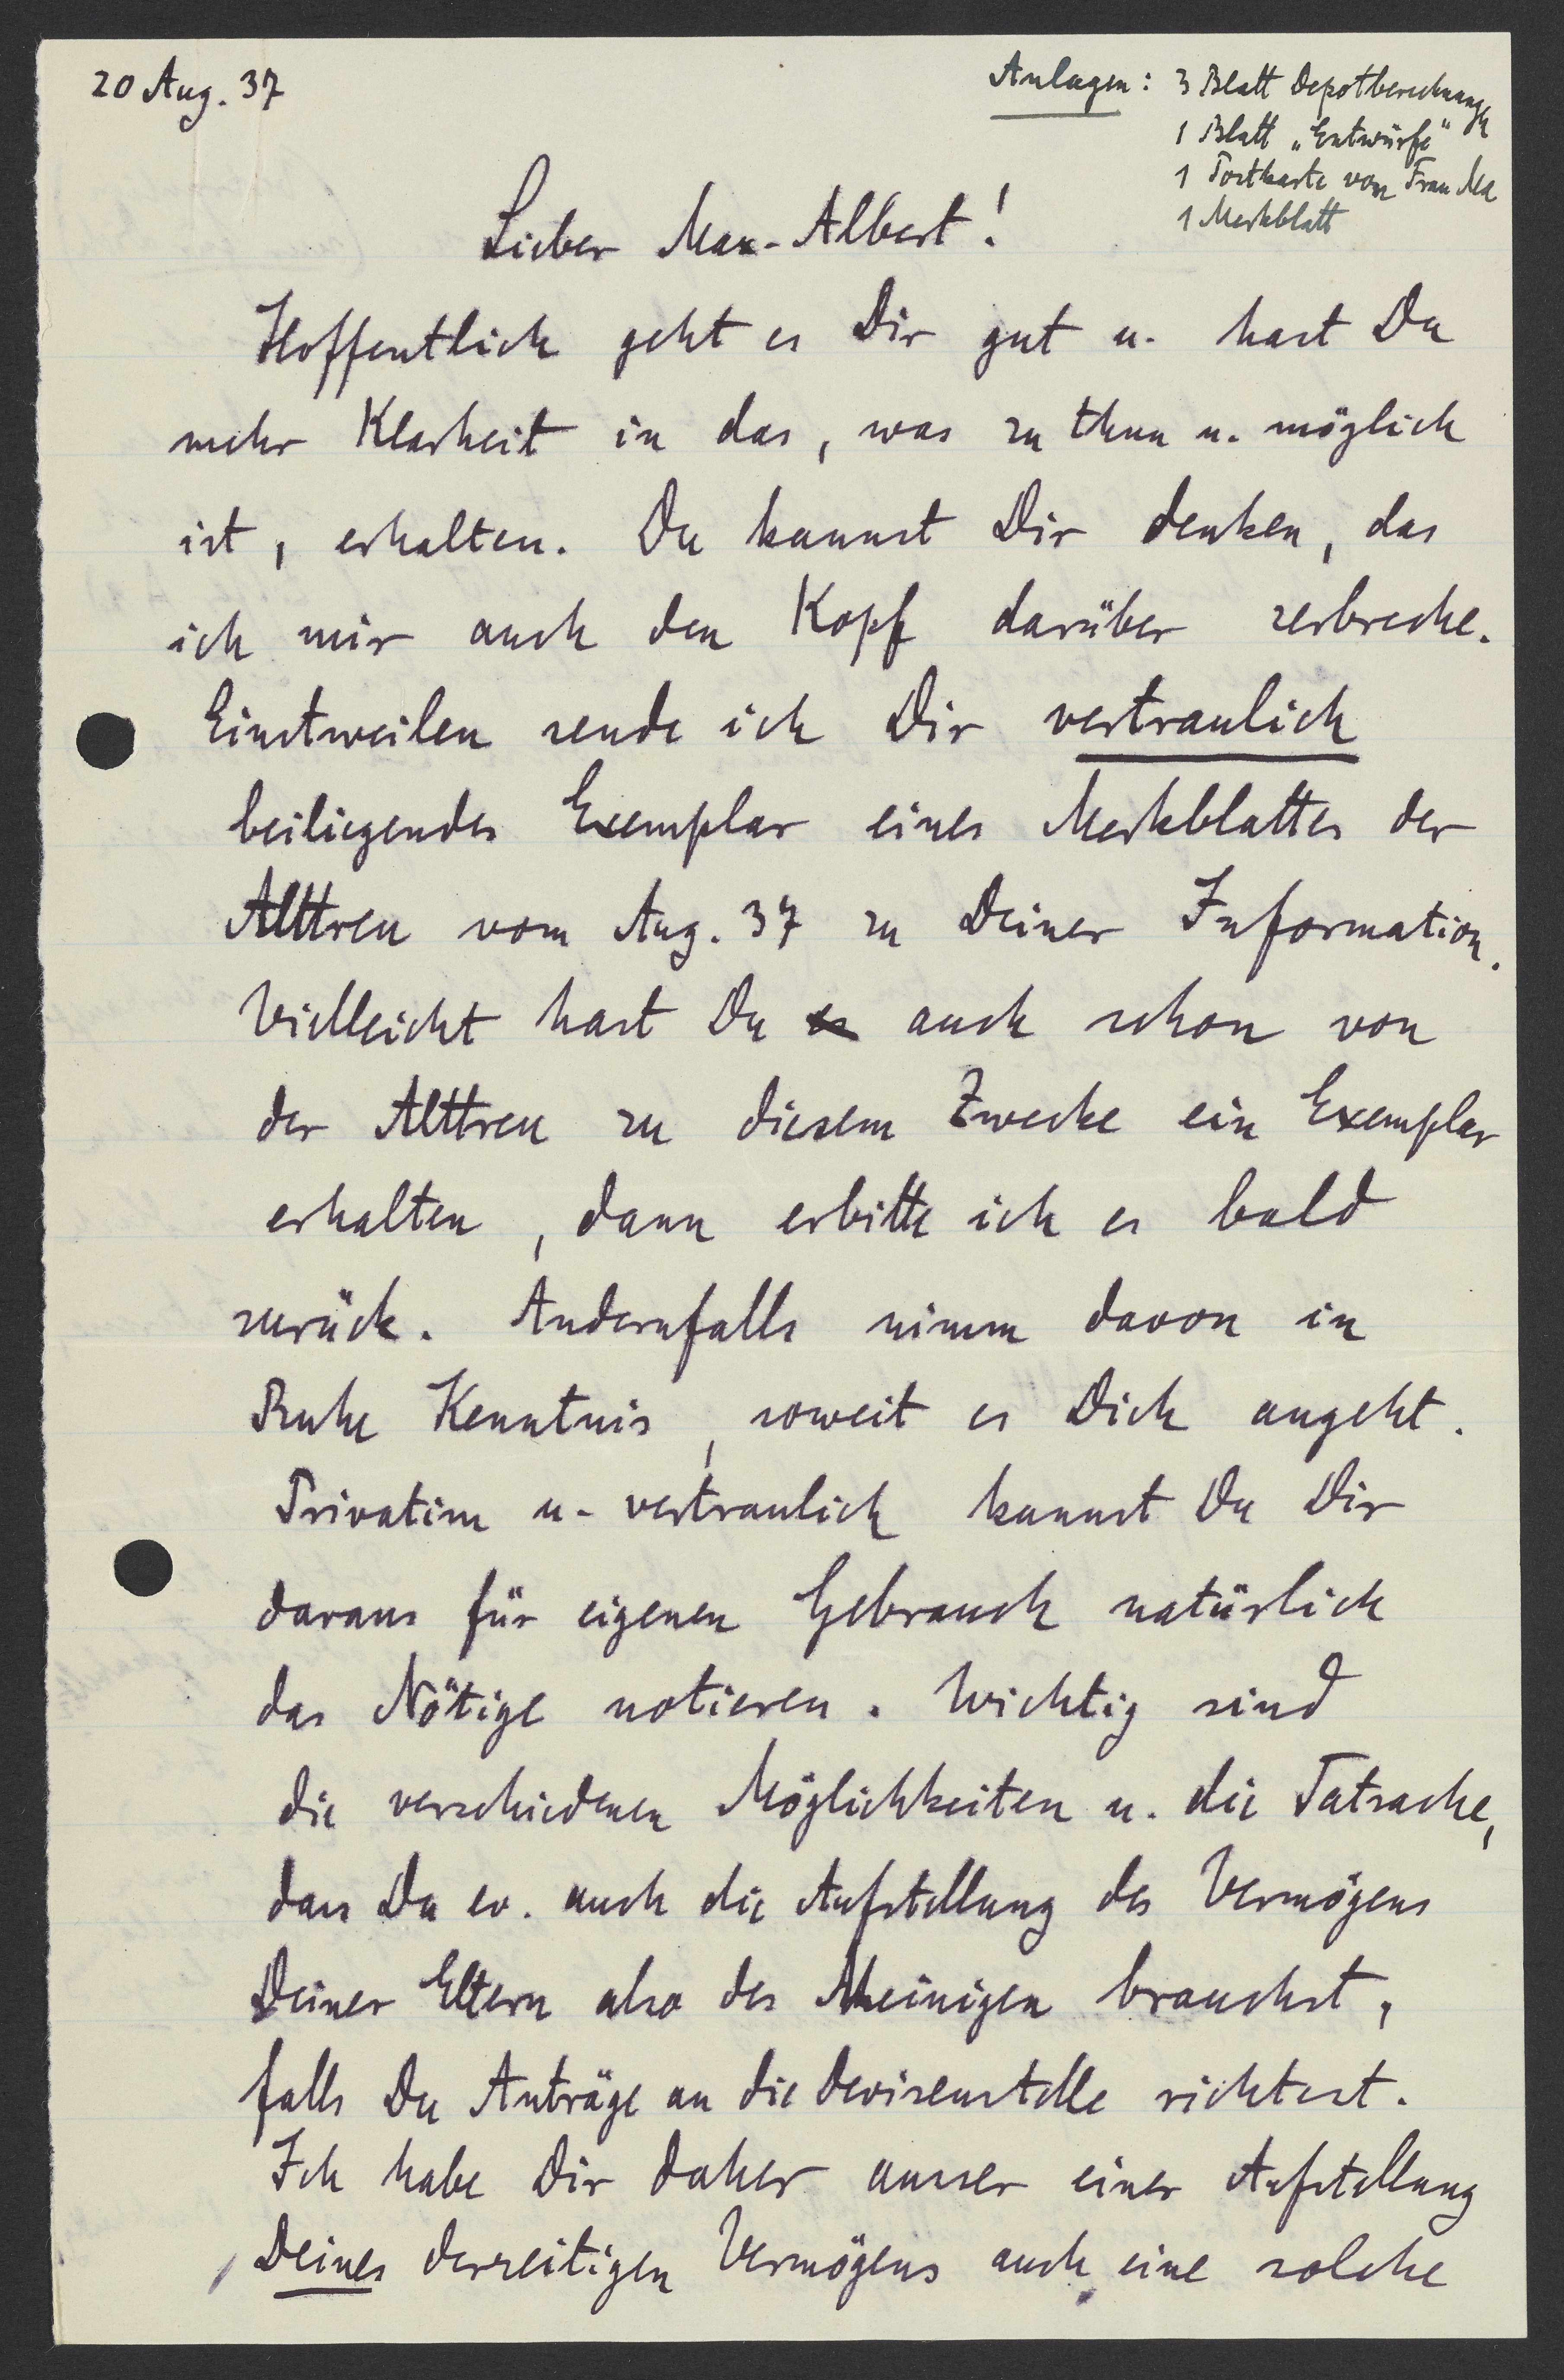 20 Aug. 37
Anlagen: 3 Blatt Depotberechnungen
1 Blatt „Entwürfe"
1 Postkarte von Frau Ma
1 Merkblatt
Lieber Max-Albert!
Hoffentlich geht es Dir gut u. hast Du
mehr Klarheit in das, was zu thun u. möglich
ist, erhalten. Du kannst Dir denken, das
ich mir auch den Kopf darüber zerbreche.
Einstweilen sende ich Dir vertraulich
beiliegendes Exemplar eines Merkblattes der
Alttreu vom Aug. 37 zu Deiner Information.
Vielleicht hast Du es auch schon von
der Alttreu zu diesem Zwecke ein Exemplar
erhalten, dann erbitte ich es bald
zurück. Andernfalls nimm davon in
Ruhe Kenntnis, soweit es Dich angeht.
Privatim u. vertraulich kannst Du Dir
daraus für eigenen Gebrauch natürlich
das Nötige notieren. Wichtig sind
die verschiedenen Möglichkeiten u. die Tatsache,
dass Du ev. auch die Aufstellung des Vermögens
Deiner Eltern also des Meinigen brauchst,
falls Du Anträge an die Devisenstelle richtest.
Ich habe Dir daher ausser einer Aufstellung
Deines derzeitigen Vermögens auch eine solche